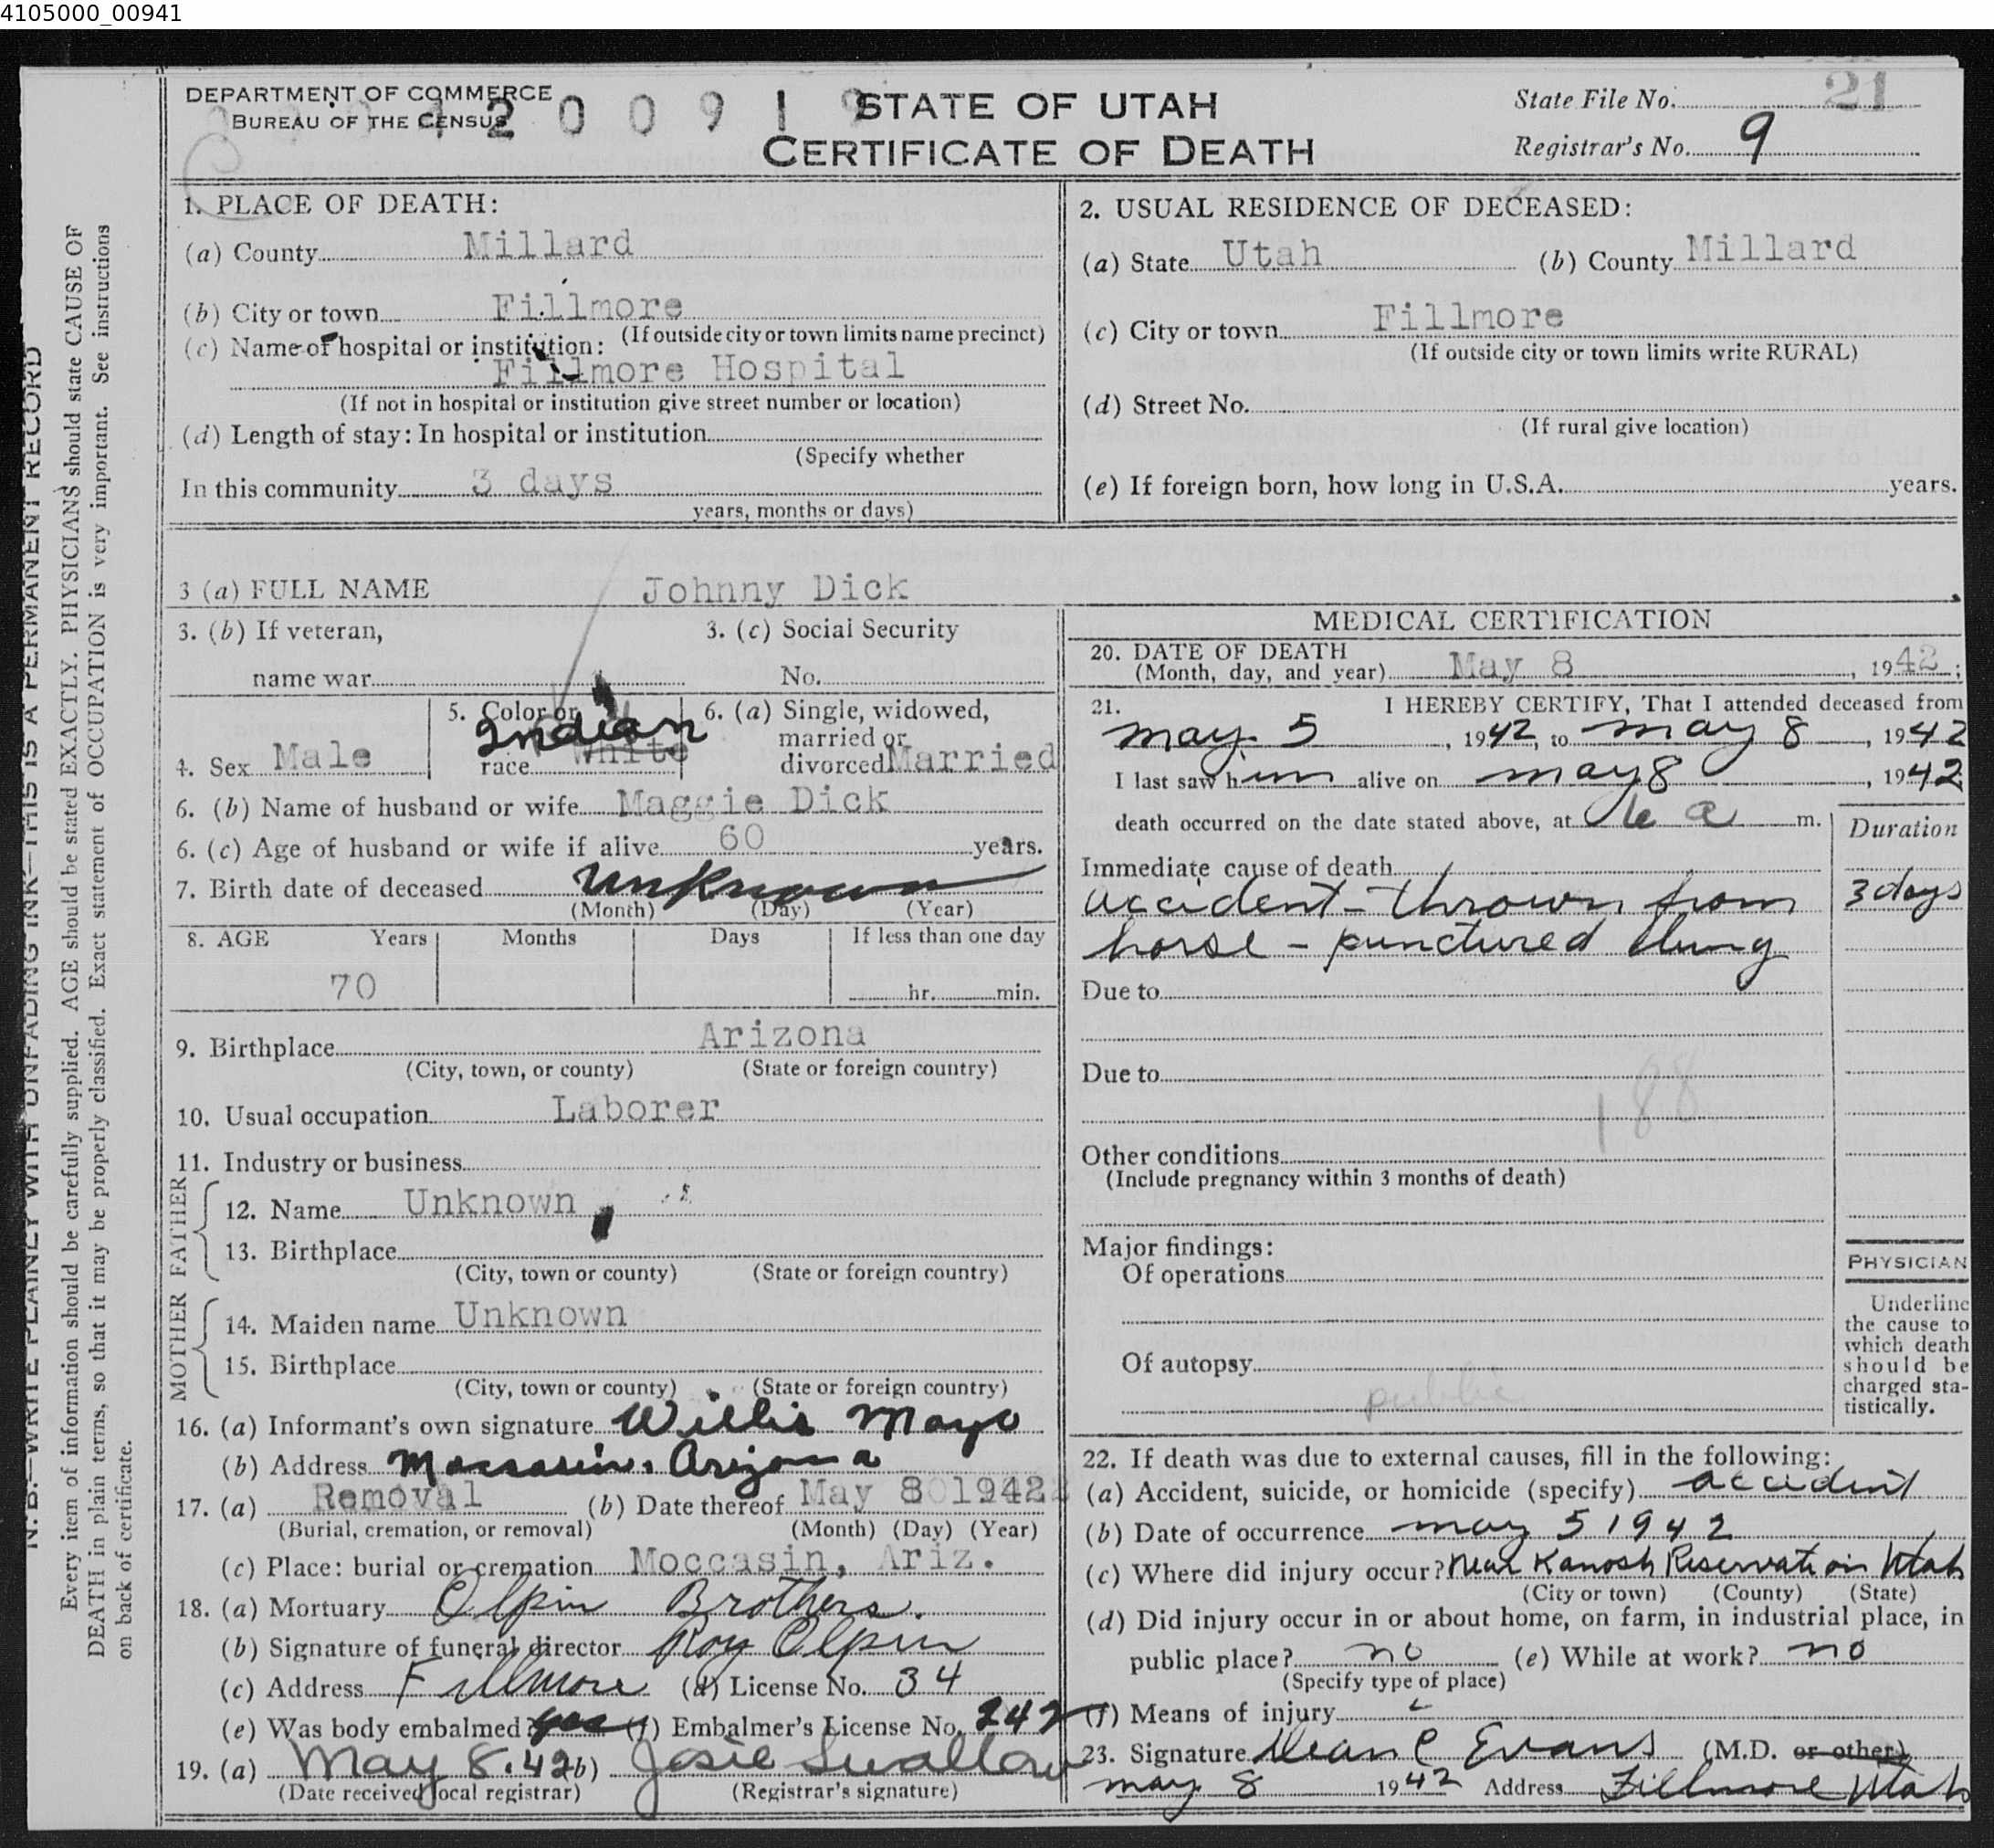 4105000_00941
DEPARTMENT OF COMMERCE
BUREAU OF THE CENSUS
2 0 0 9 1 9
STATE OF UTAH
CERTIFICATE OF DEATH
State File No. 21
Registrar's No. 9
N. B.—WRITE PLAINLY WITH UNFADING INK—THIS IS A PERMANENT RECORD
Every item of information should be carefully supplied. AGE should be stated EXACTLY. PHYSICIANS should state CAUSE OF
DEATH in plain terms, so that it may be properly classified. Exact statement of OCCUPATION is very important. See instructions
on back of certificate.
1. PLACE OF DEATH:
(a) County Millard
(b) City or town Fillmore
(If outside city or town limits name precinct)
(c) Name of hospital or institution:
Fillmore Hospital
(If not in hospital or institution give street number or location)
(d) Length of stay: In hospital or institution
(Specify whether
In this community 3 days
years, months or days)
2. USUAL RESIDENCE OF DECEASED:
(a) State Utah (b) County Millard
(c) City or town Fillmore
(If outside city or town limits write RURAL)
(d) Street No.
(If rural give location)
(e) If foreign born, how long in U.S.A. years.
3 (a) FULL NAME Johnny Dick
3. (b) If veteran,
name war
3. (c) Social Security
No.
4. Sex Male
5. Color or
race White
Indian
6. (a) Single, widowed,
married or
divorced Married
6. (b) Name of husband or wife Maggie Dick
6. (c) Age of husband or wife if alive 60 years.
7. Birth date of deceased Unknown
(Month) (Day) (Year)
8. AGE Years Months Days If less than one day
70 hr. min.
9. Birthplace Arizona
(City, town, or county) (State or foreign country)
10. Usual occupation Laborer
11. Industry or business
FATHER
12. Name Unknown
13. Birthplace
(City, town or county) (State or foreign country)
MOTHER
14. Maiden name Unknown
15. Birthplace
(City, town or county) (State or foreign country)
16. (a) Informant's own signature Willis Mayo
(b) Address Moccasin, Arizona
17. (a) Removal (b) Date thereof May 8 1942
(Burial, cremation, or removal) (Month) (Day) (Year)
(c) Place: burial or cremation Moccasin, Ariz.
18. (a) Mortuary Olpin Brothers.
(b) Signature of funeral director Roy Olpin
(c) Address Fillmore (d) License No. 34
(e) Was body embalmed? yes (f) Embalmer's License No. 242
19. (a) May 8.42 (b) Josie Swallow
(Date received local registrar) (Registrar's signature)
MEDICAL CERTIFICATION
20. DATE OF DEATH
(Month, day, and year) May 8, 1942;
21. I HEREBY CERTIFY, That I attended deceased from
May 5, 1942, to May 8, 1942
I last saw him alive on May 8, 1942
death occurred on the date stated above, at 6 a m.
Duration
Immediate cause of death
accident - thrown from 3 days
horse - punctured lung
Due to
Due to
188
Other conditions
(Include pregnancy within 3 months of death)
Major findings:
Of operations
Of autopsy
public
PHYSICIAN
Underline
the cause to
which death
should be
charged sta-
tistically.
22. If death was due to external causes, fill in the following:
(a) Accident, suicide, or homicide (specify) accident
(b) Date of occurrence May 5 1942
(c) Where did injury occur? Near Kanosh Reservation Utah
(City or town) (County) (State)
(d) Did injury occur in or about home, on farm, in industrial place, in
public place? no (e) While at work? no
(Specify type of place)
(f) Means of injury
23. Signature Dean C Evans (M.D. or other)
May 8 1942 Address Fillmore Utah